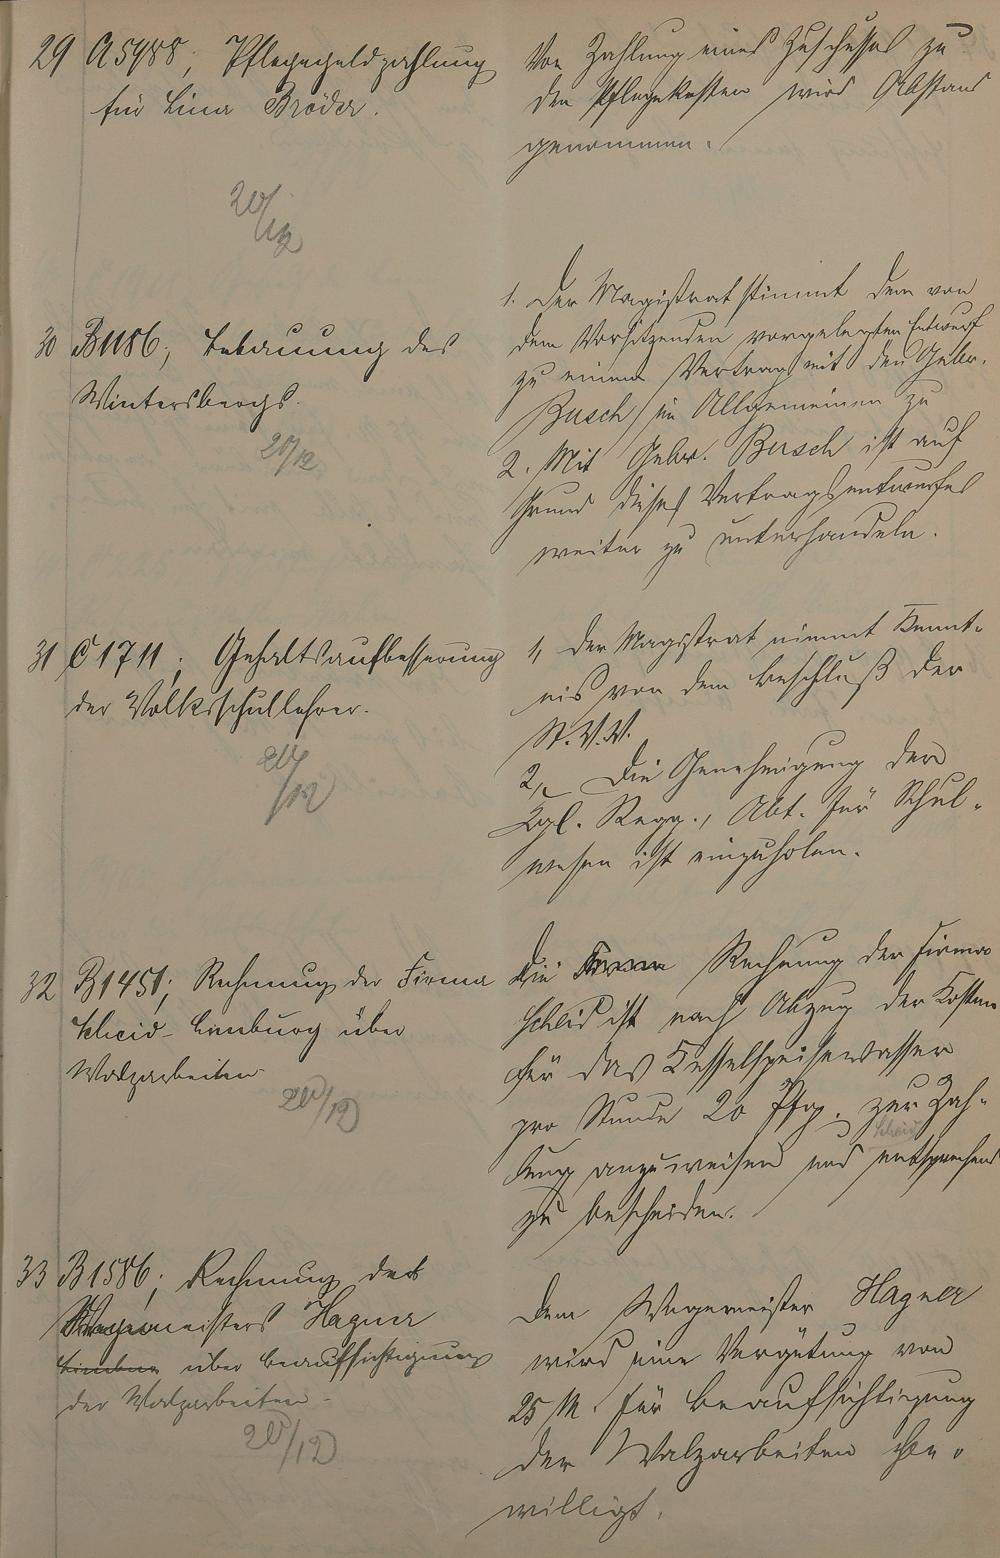 29 A5988; Pflegegeldzahlung
für Lina Bröder.
20/12
Von Zahlung eines Zuschusses zu
den Pflegekosten wird Abstand
genommen.
30 B1186; Bebauung des
Wintersbergs.
20/12
1. Der Magistrat stimmt dem von
dem Vorsitzenden vorgelegten Entwurf
zu einem Vertrag mit den Gebr.
Busch im Allgemeinen zu
2. Mit Gebr. Busch ist auf
Grund dieses Vertragsentwurfes
weiter zu unterhandeln.
31 C1711; Gehaltsaufbesserung
der Volksschullehrer.
20/12
1, Der Magistrat nimmt Kennt-
nis von dem Beschluß der
St.V.V.
2, Die Genehmigung der
Kgl. Regg., Abt. für Schul-
wesen ist einzuholen.
32 B1451; Rechnung der Firma
Scheid-Limburg über
Walzarbeiten
20/12
Die Rechnung der Firma
Scheid ist nach Abzug der Kosten
für das Kesselspeisewasser
pro Stunde 20 Pfg. zur Zah-
Scheid
lung anzuweisen und entsprechend
zu bescheiden.
33 B1586; Rechnung des
Wegemeisters Hagner
Limburg über Beaufsichtigung
der Walzarbeiten
20/12
Dem Wegemeister Hagner
wird eine Vergütung von
25 M. für Beaufsichtigung
der Walzarbeiten be-
willigt.